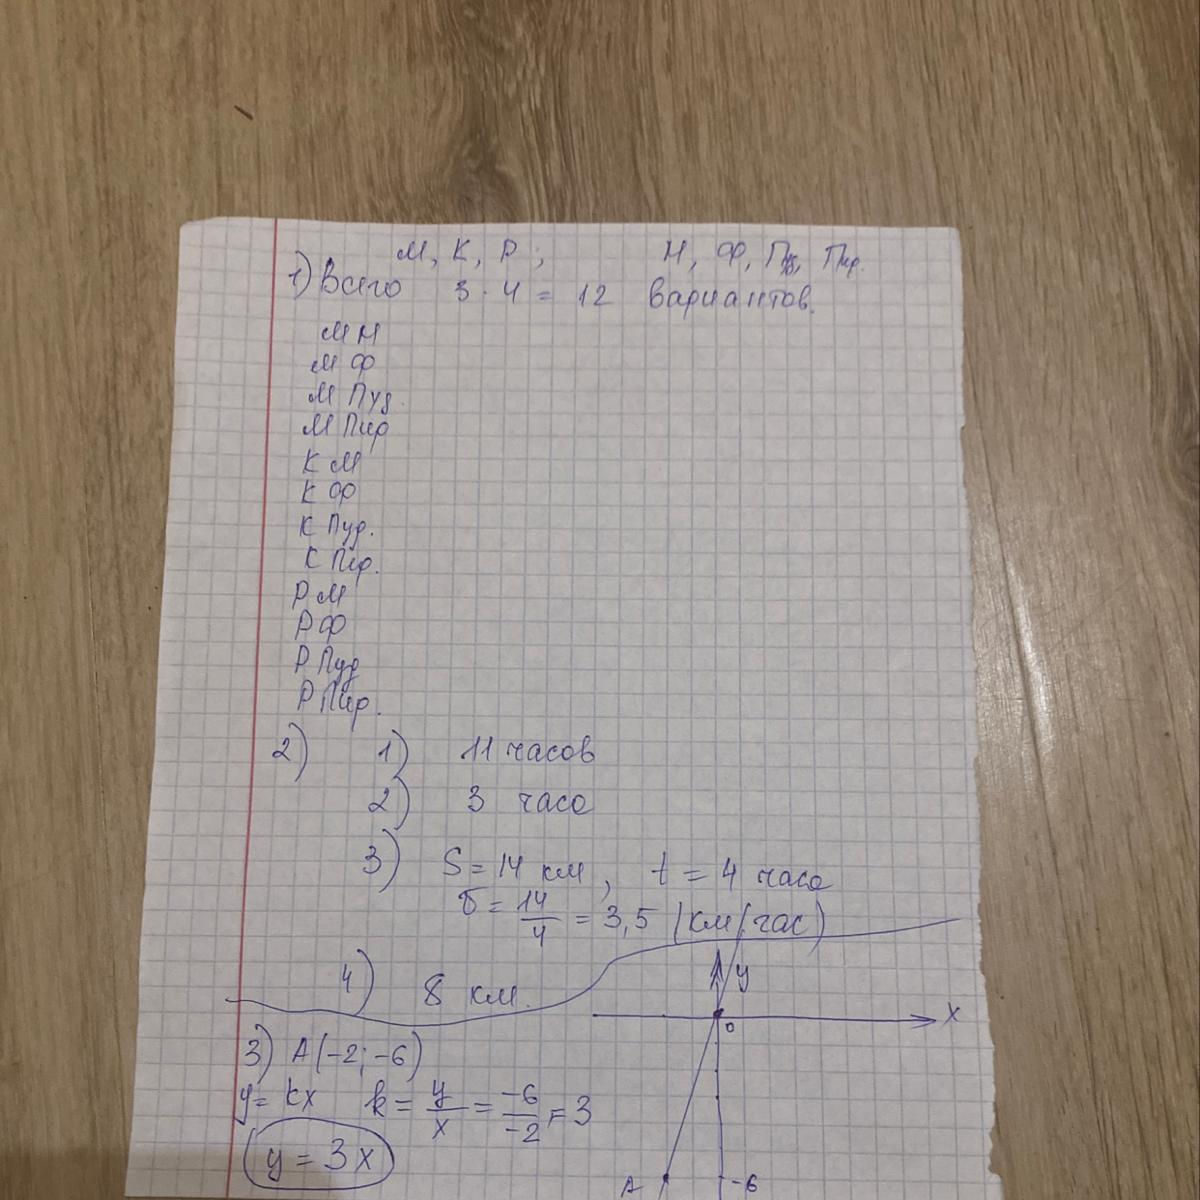 М, К, Р; Н, Ф, Пуд, Пир.
1) Всего 3 · 4 = 12 вариантов.
М Н
М Ф
М Пуд.
М Пир
К М
К Ф
К Пуд.
К Пир.
Р М
Р Ф
Р Пуд
Р Пир.
2) 1) 11 часов
2) 3 часа
3) S = 14 км, t = 4 часа
v = 14/4 = 3,5 (км/час)
4) 8 км.
y
x
0
3) A(-2; -6)
y = kx k = y/x = -6/-2 = 3
y = 3x
A -6